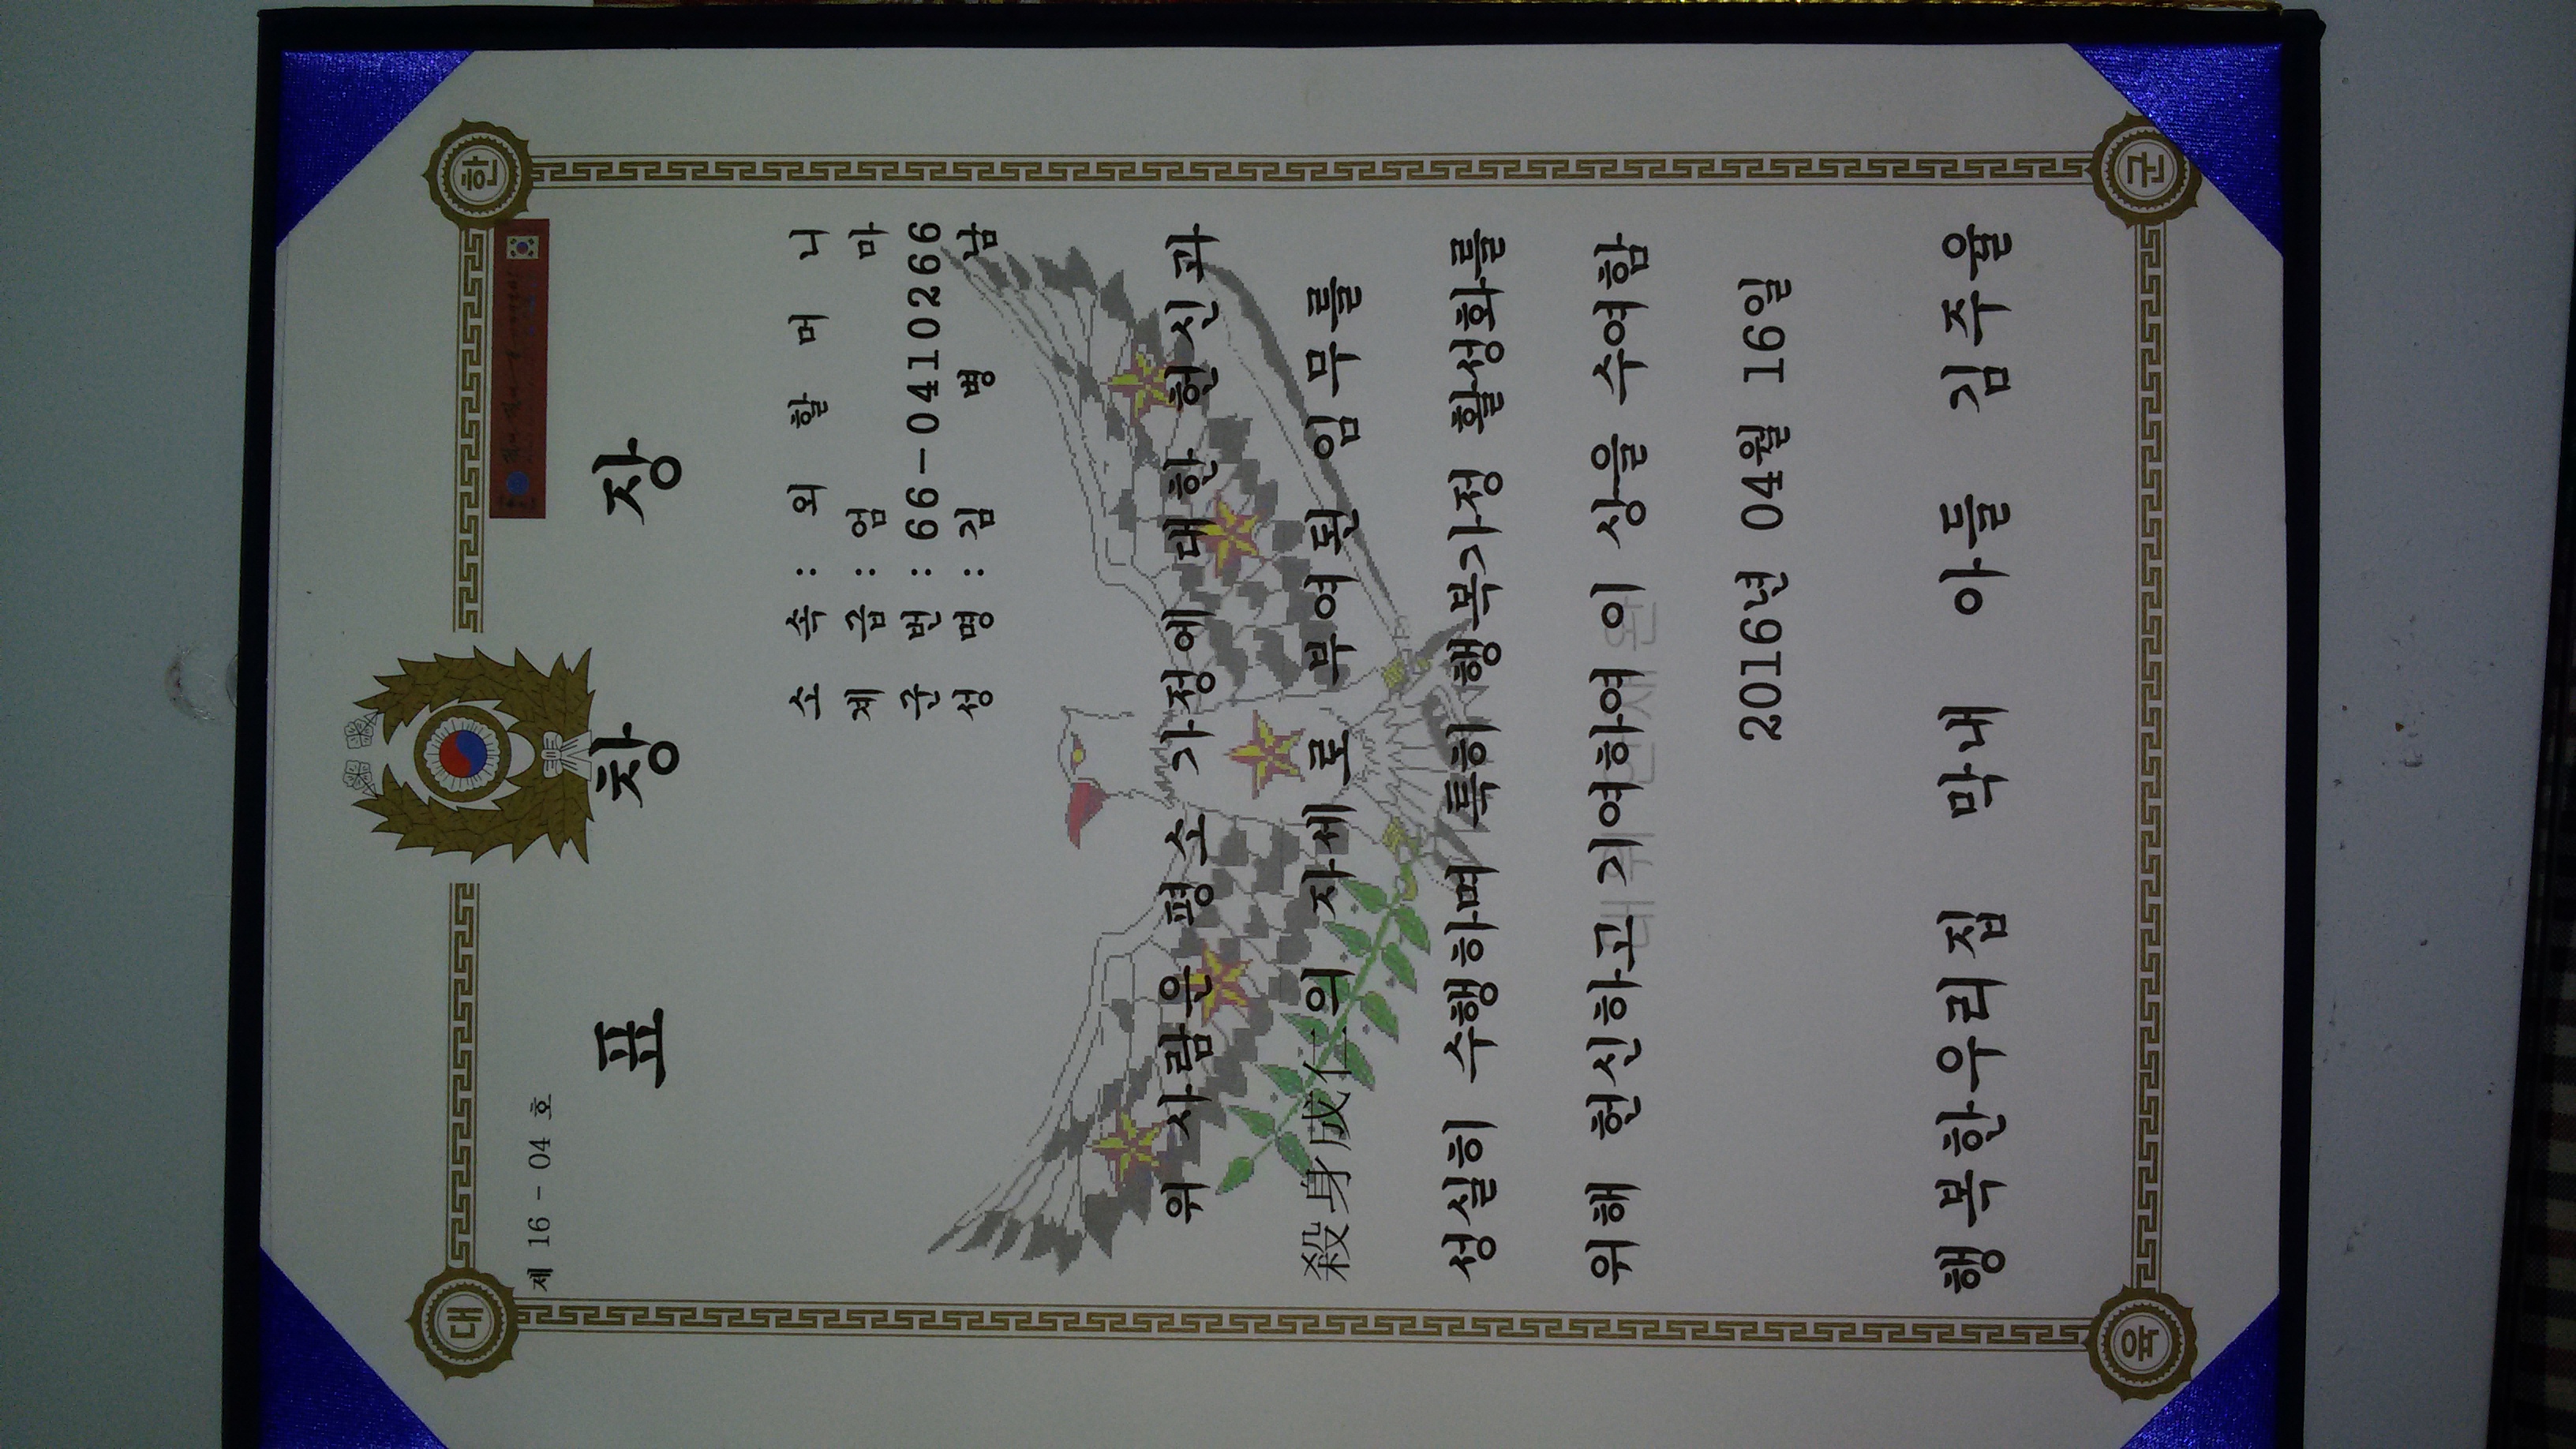 대 한
제 16 - 04 호
표 창 장
소 속 : 외 할 머 니
계 급 : 엄 마
군 번 : 66-0410266
성 명 : 김 병 남
위 사람은 평소 가정에 대한 헌신과
殺身成仁의 자세로 부여된 임무를
성실히 수행하며 특히 행복가정 활성화를
위해 헌신하고 기여하여 이 상을 수여함
2016년 04월 16일
행복한우리집 막내 아들 김주율
육 군